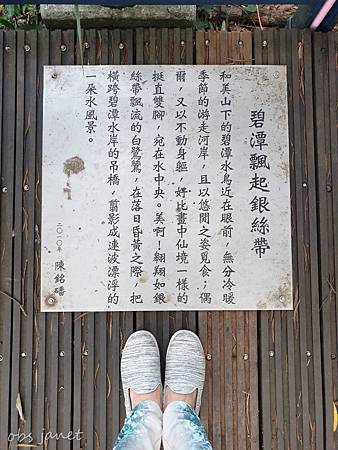 碧潭飄起銀絲帶
和美山下的碧潭水鳥近在眼前，無分冷暖
季節的游走河岸，且以悠閒之姿覓食；偶
爾，又以不動身軀，好比畫中仙境一樣的
挺直雙腳，宛在水中央。美啊！翱翔如銀
絲帶飄流的白鷺鷥，在落日昏黃之際，把
橫跨碧潭水岸的吊橋，翦影成連波漂浮的
一朵水風景。
二〇一〇年 陳銘磻
obs janet